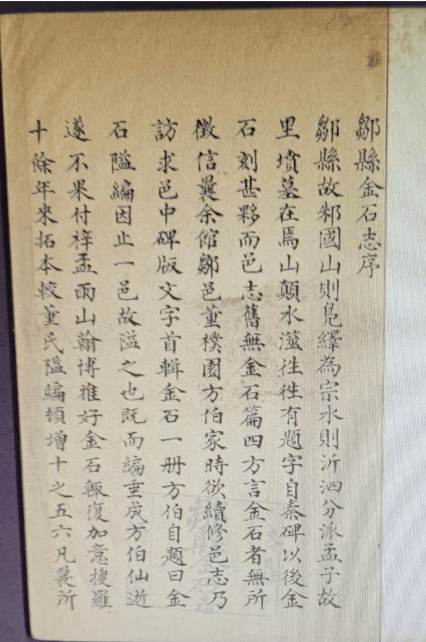 鄒縣金石志序
鄒縣故邾國山則鳧繹為宗水則沂泗分派孟子故
里墳墓在焉山顛水澨徃徃有題字自秦碑以後金
石刻甚夥而邑志舊無金石篇四方言金石者無所
徵信曩余館鄒邑董樸園方伯家時欲續修邑志乃
訪求邑中碑版文字首輯金石一冊方伯自題曰金
石隘編因止一邑故隘之也既而編垂成方伯仙逝
遂不果付梓孟雨山翰博雅好金石輙復加意搜羅
十餘年來拓本較董氏隘編頓增十之五六凡曩所